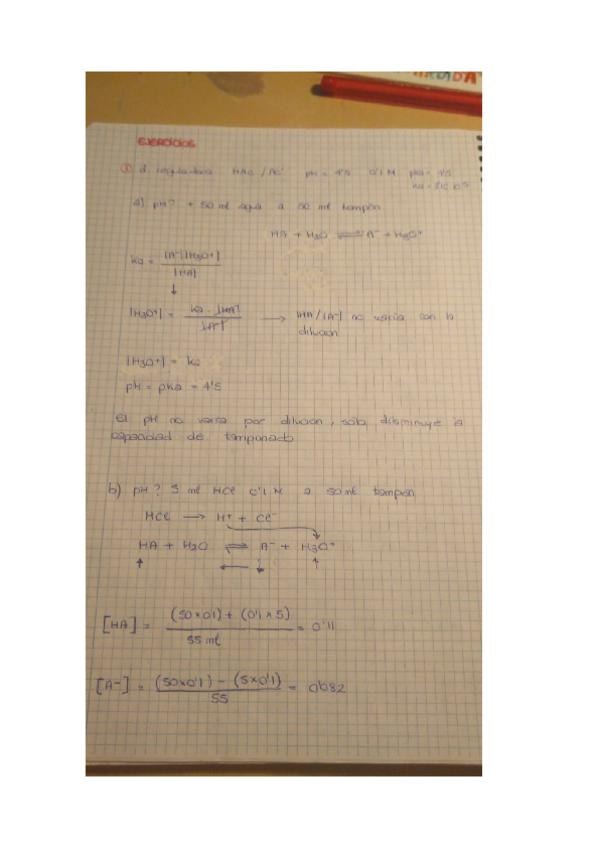 EJERCICIOS
① d. reguladora HAc / Ac⁻ pH = 4'5 0'1 M pKa = 4'5
a) pH? + 50 ml agua a 50 ml tampón
HA + H₂O ⇌ A⁻ + H₃O⁺
Ka = |A⁻||H₃O⁺| / |HA|
↓
|H₃O⁺| = Ka · |HA| / |A⁻| → |HA|/|A⁻| no varía con la
dilución
|H₃O⁺| = Ka
pH = pKa = 4'5
El pH no varia por dilución, sólo disminuye la
capacidad de tamponado
b) pH? 5 ml HCl 0'1 M a 50 ml tampón
HCl → H⁺ + Cl⁻
HA + H₂O ⇌ A⁻ + H₃O⁺
↑ ← ↓ ↑
[HA] = (50×0'1) + (0'1×5) / 55 ml = 0'11
[A⁻] = (50×0'1) - (5×0'1) / 55 = 0'082